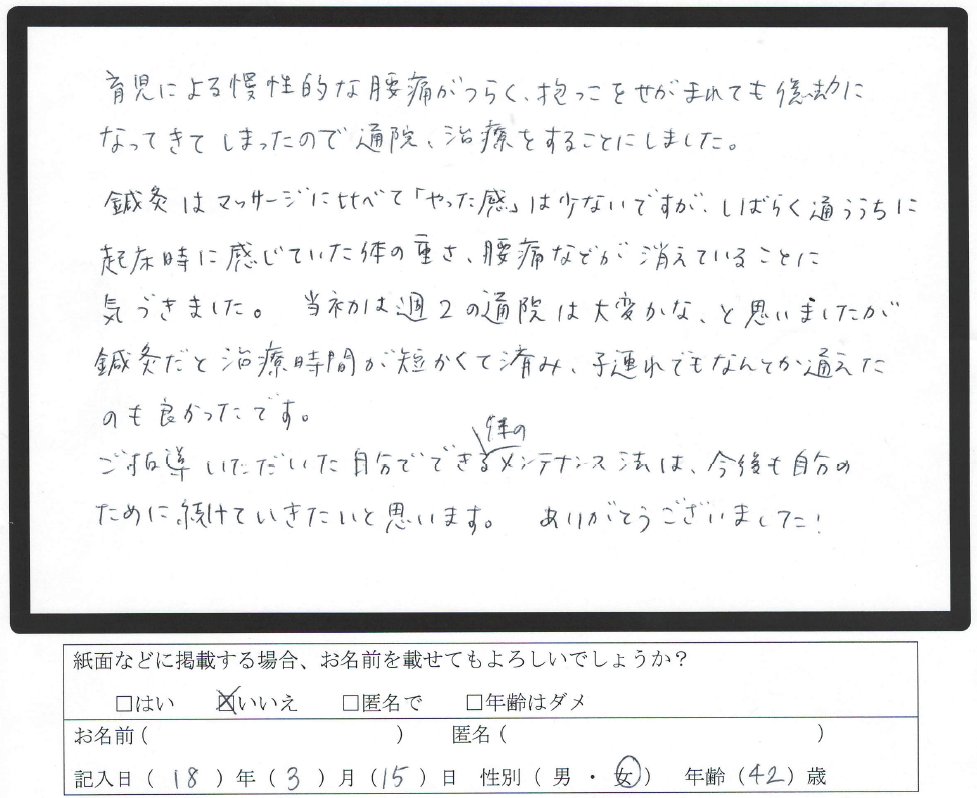 育児による慢性的な腰痛がつらく、抱っこをせがまれても億劫に
なってきてしまったので通院、治療をすることにしました。
鍼灸はマッサージに比べて「やった感」は少ないですが、しばらく通ううちに
起床時に感じていた体の重さ、腰痛などが消えていることに
気づきました。 当初は週2の通院は大変かな、と思いましたが
鍼灸だと治療時間が短かくて済み、子連れでもなんとか通えた
のも良かったです。
ご指導いただいた自分でできる体のメンテナンス法は、今後も自分の
ために続けていきたいと思います。 ありがとうございました!
紙面などに掲載する場合、お名前を載せてもよろしいでしょうか?
□はい ☒いいえ □匿名で □年齢はダメ
お名前( ) 匿名( )
記入日( 18 )年( 3 )月(15)日 性別( 男 ・ 女 ) 年齢(42)歳